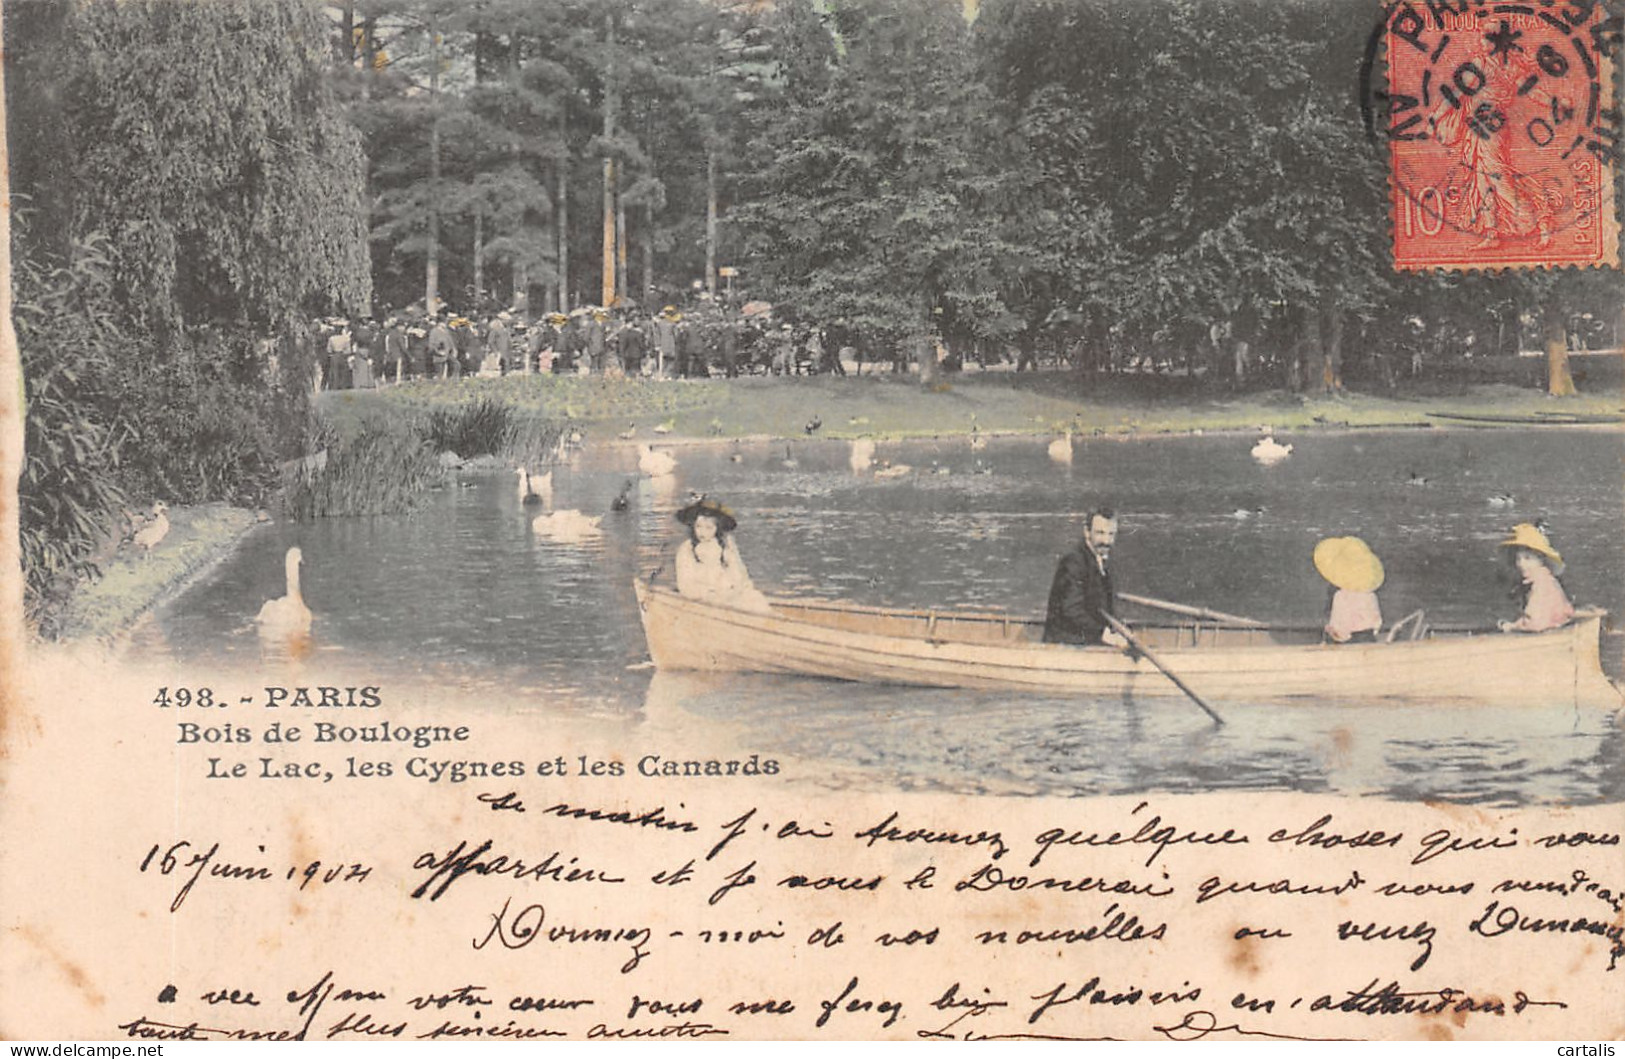 POSTES
10 c
10
16 - 6
04
498. - PARIS
Bois de Boulogne
Le Lac, les Cygnes et les Canards
se matin j'ai trouvez quélque choses qui vous
16 Juin 1904 appartien et je vous le Donnerai quand vous viendrai
Donnez-moi de vos nouvélles ou venez Dimanche
a vec
votre cœur vous me ferez bien plaisir en, attendand
toute mes plus sincéren amitie
cartalis
delcampe.net